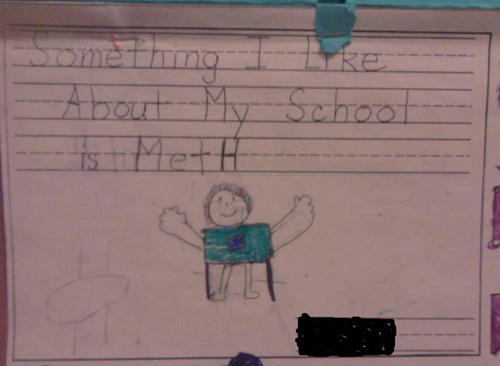 Something I Like
About My School
is MetH